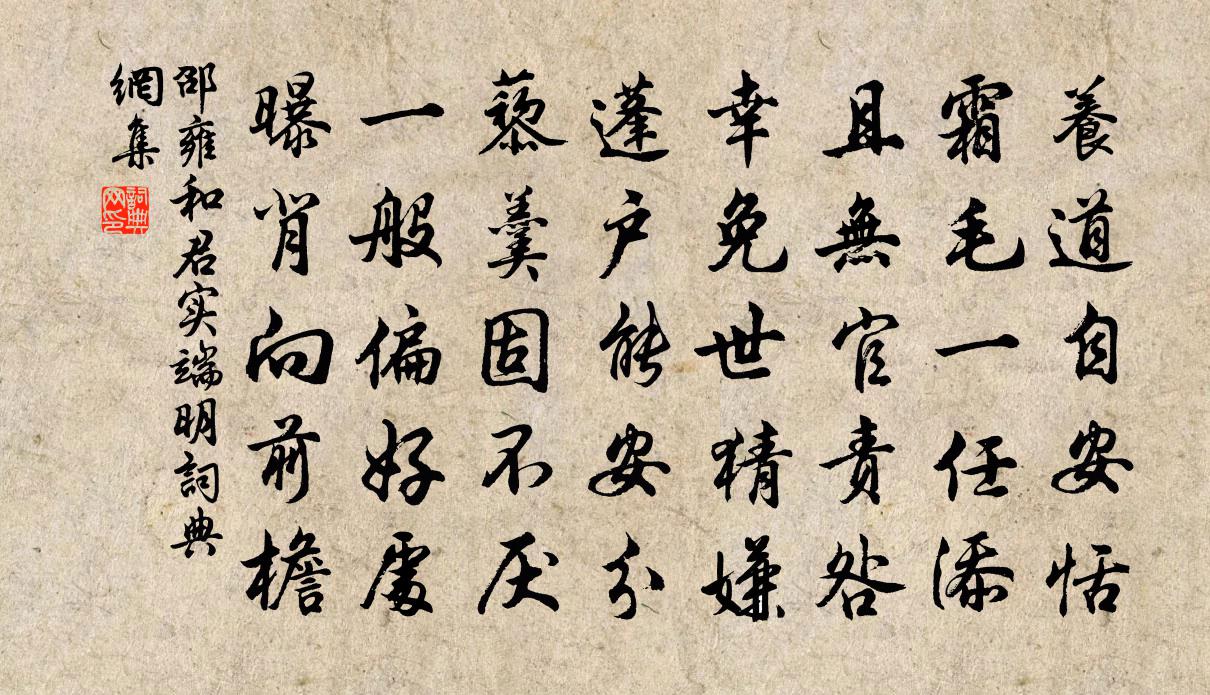 養道自安恬
霜毛一任添
且無官責咎
幸免世猜嫌
蓬户能安分
藜羹固不厌
一般偏好處
曝背向前檐
邵雍和君实端明詞典
網集
詞典
网印